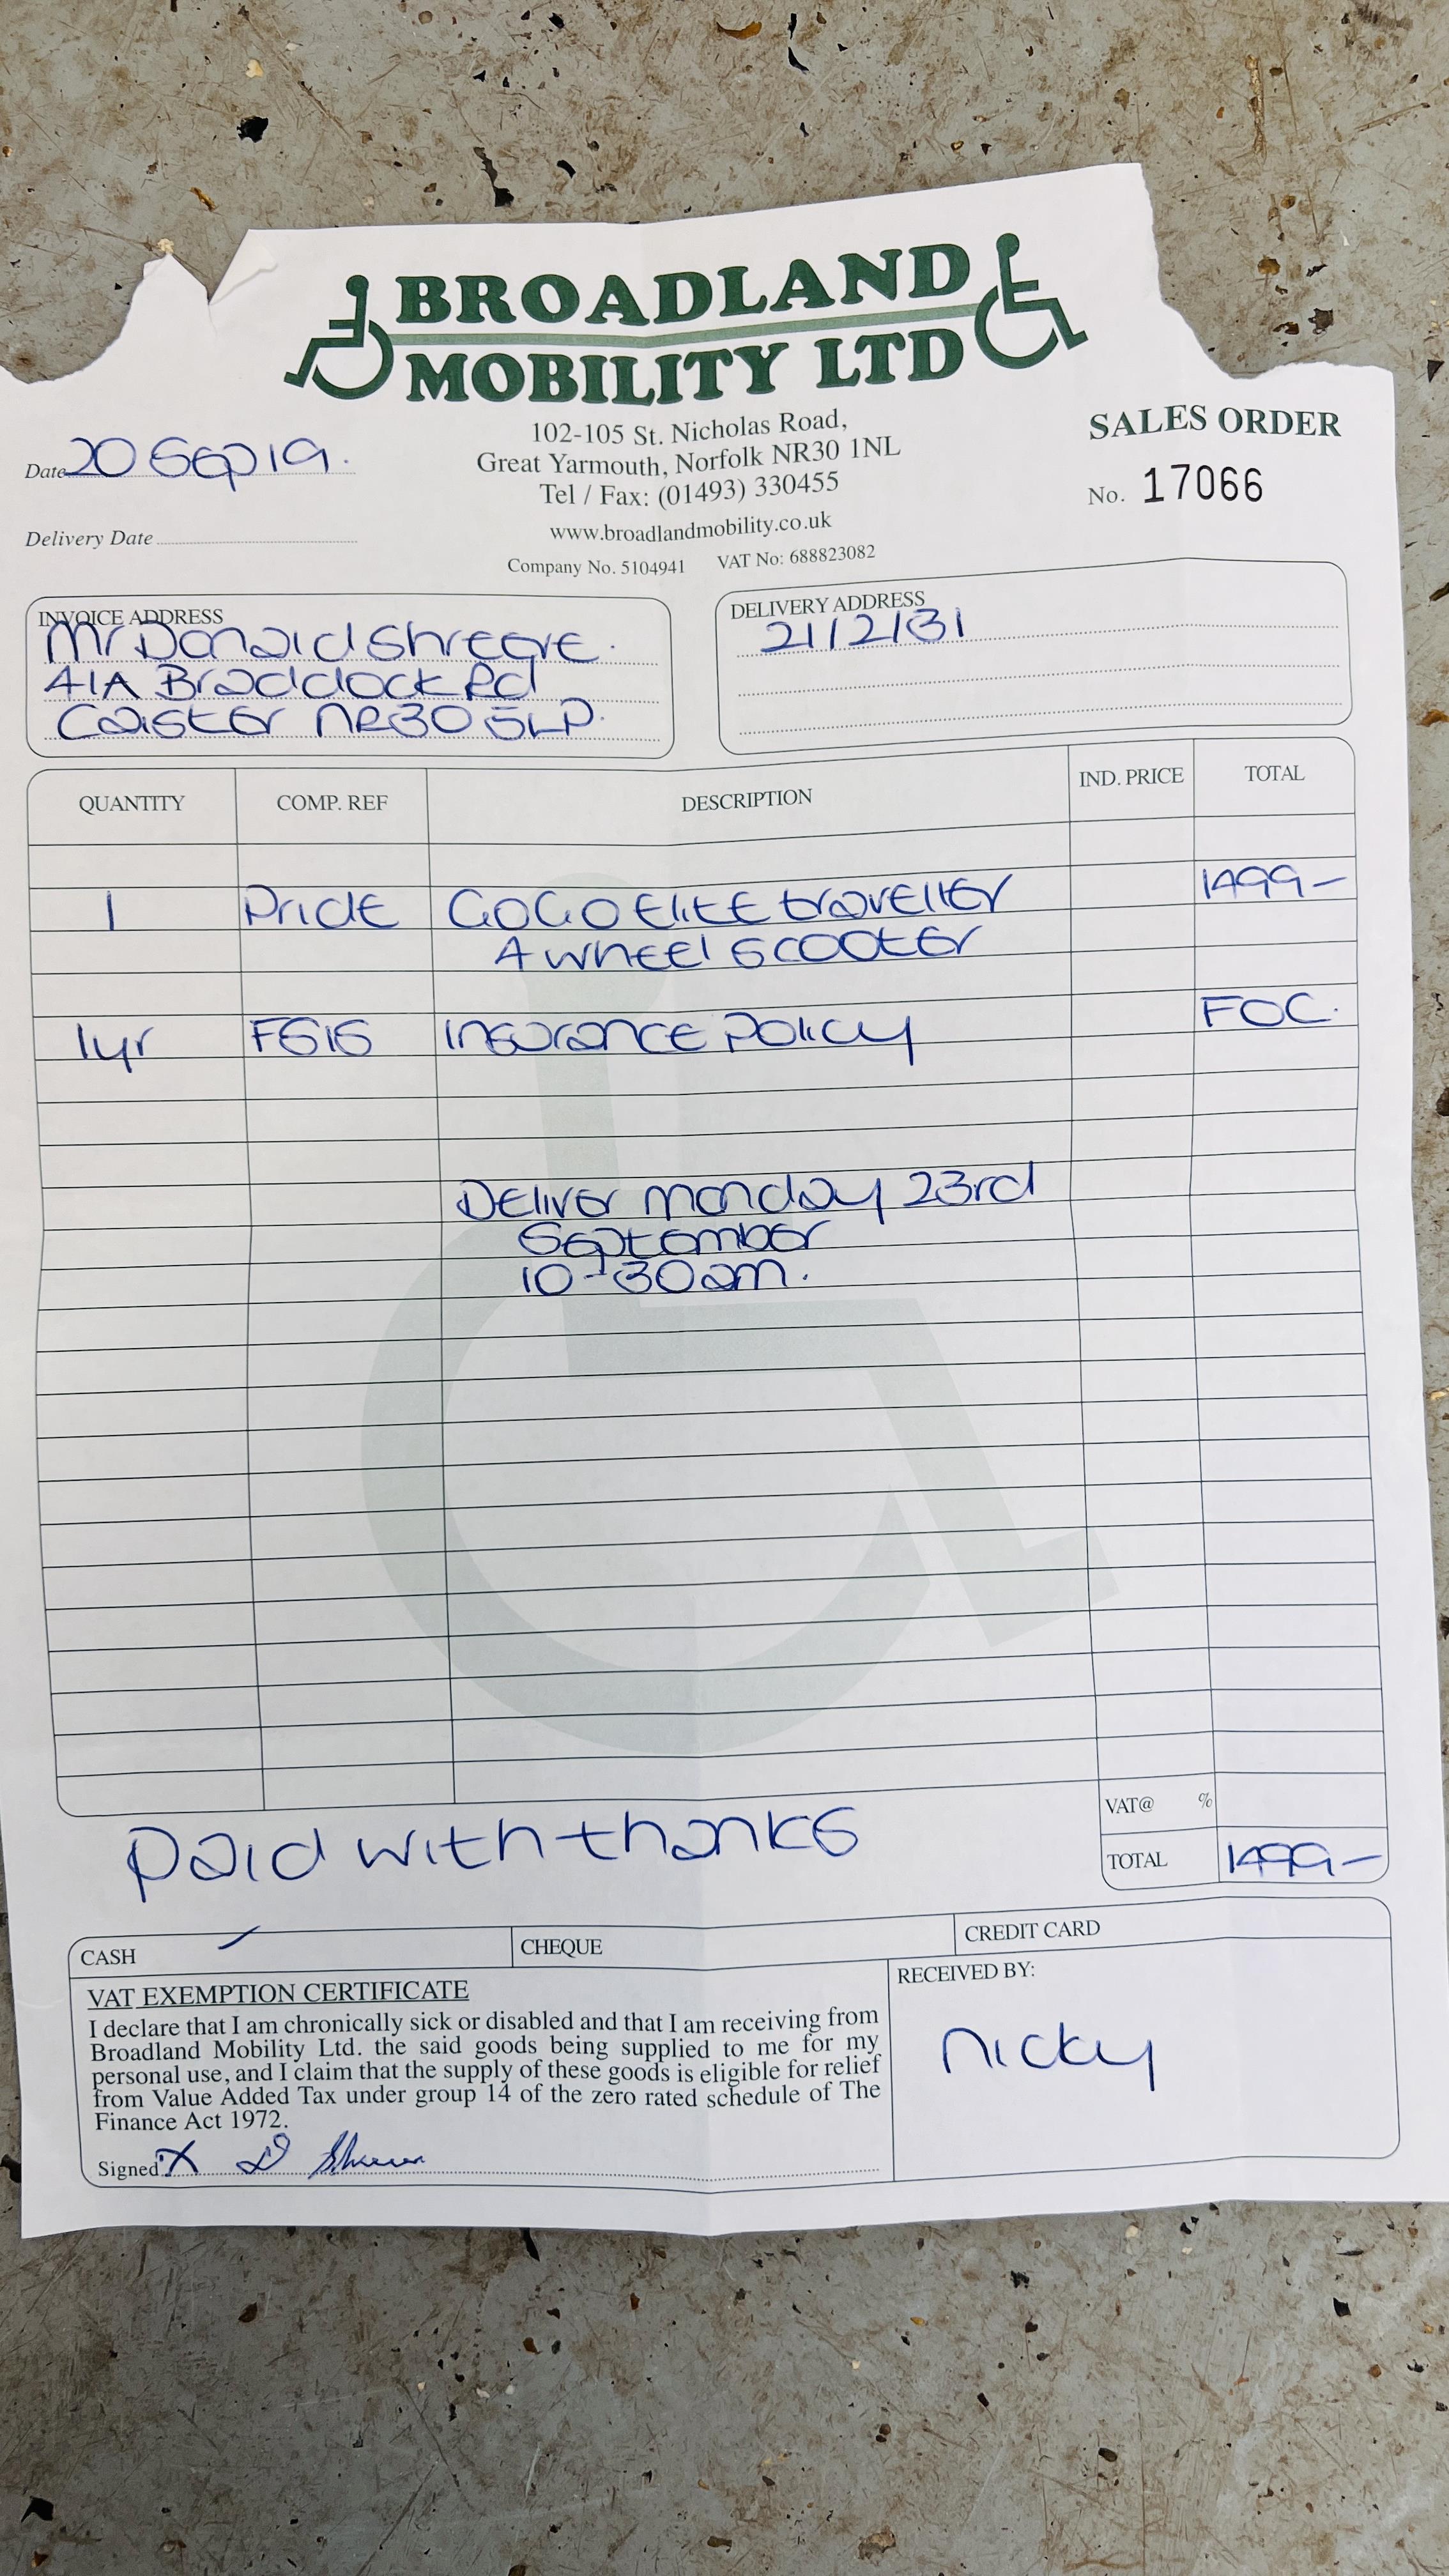 BROADLAND
MOBILITY LTD
102-105 St. Nicholas Road,
Great Yarmouth, Norfolk NR30 1NL
Tel / Fax: (01493) 330455
www.broadlandmobility.co.uk
Company No. 5104941 VAT No: 688823082
SALES ORDER
No. 17066
Date 20 Sep 19.
Delivery Date
INVOICE ADDRESS
Mr Donald Shreeve.
41A Braddock Rd
Caister NR30 5LP.
DELIVERY ADDRESS
21/2/31
QUANTITY COMP. REF DESCRIPTION IND. PRICE TOTAL
1 Pride GOGO Elite traveller 1499-
4 wheel scooter
1yr Insurance Policy FOC.
Deliver monday 23rd
September
10-30am.
Paid with thanks
VAT@ %
TOTAL 1499-
CASH / CHEQUE CREDIT CARD
VAT EXEMPTION CERTIFICATE
I declare that I am chronically sick or disabled and that I am receiving from
Broadland Mobility Ltd. the said goods being supplied to me for my
personal use, and I claim that the supply of these goods is eligible for relief
from Value Added Tax under group 14 of the zero rated schedule of The
Finance Act 1972.
Signed X D Shreeve
RECEIVED BY:
Nicky